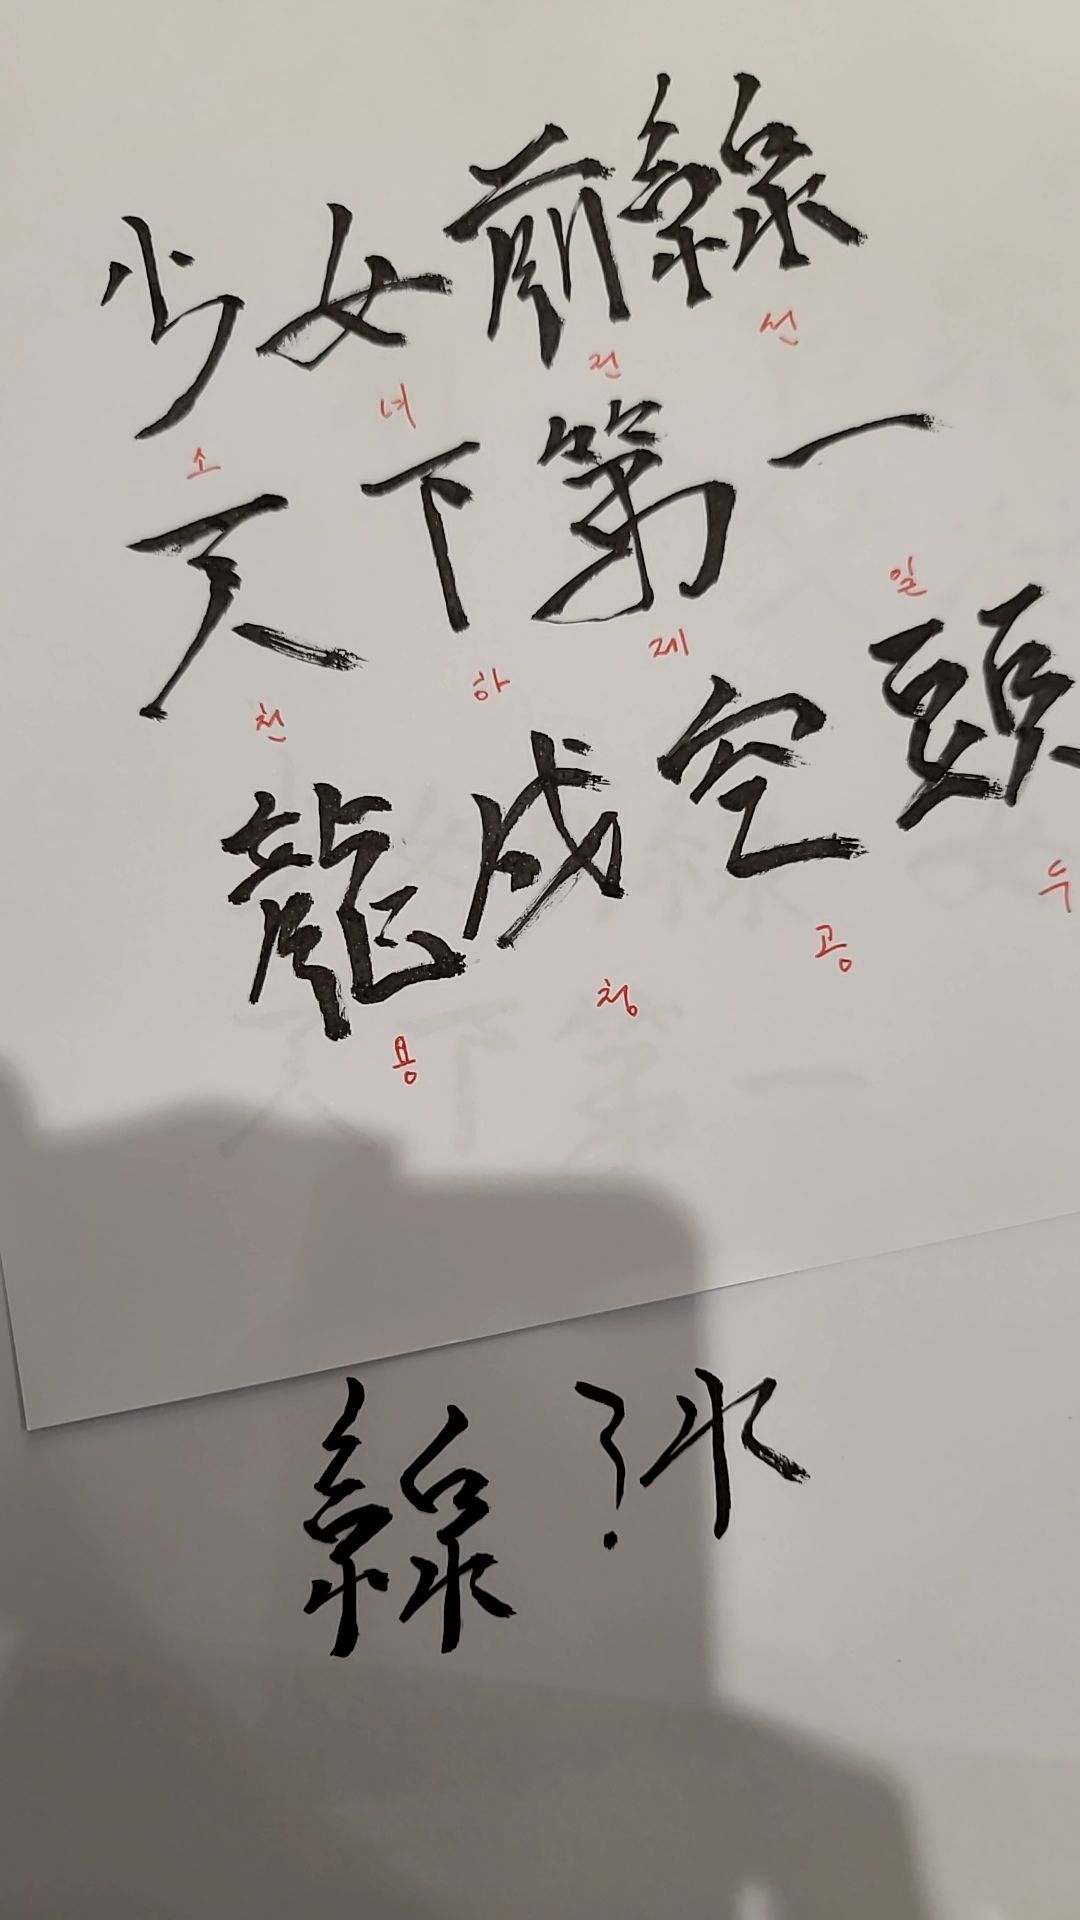 少女前線
소 녀 전 선
天下第一
천 하 제 일
龍成空頭
용 청 공
線 ? 水